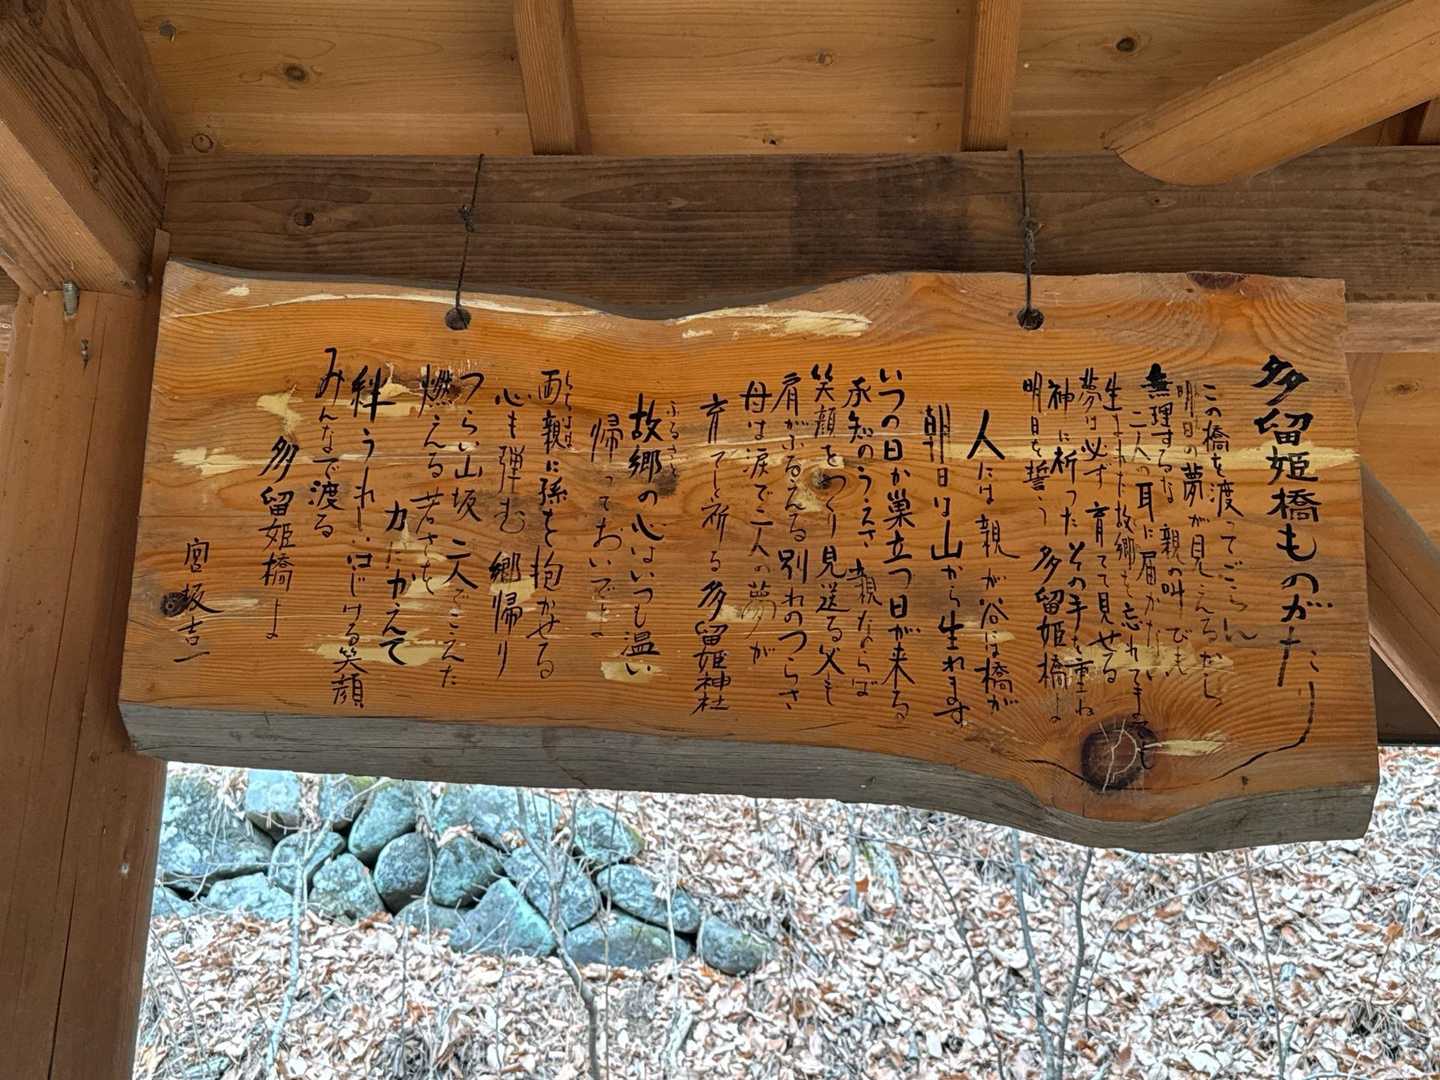 多留姫橋ものがたり
この橋を渡ってごらん
明日の夢が見えるから
無理するな 親の叫びも
二人の耳に届かない
生まれた故郷も忘れて
夢は必ず育てて見せる
神に祈ったその手を重ね
明日を誓う 多留姫橋よ
人には親が谷には橋が
朝日は山から生れます
いつの日か巣立つ日が来る
承知のうえさ親ならば
笑顔をつくり見送る父も
肩がふるえる別れのつらさ
母は涙で二人の夢が
育てと祈る多留姫神社
ふるさと
故郷の心はいつも温い
帰っておいでよ
両親に孫を抱かせる
心も弾む 郷帰り
つらい山坂 二人でこえた
燃える若さを
力にかえて
絆うれしいはじける笑顔
みんなで渡る
多留姫橋よ
宮坂吉一